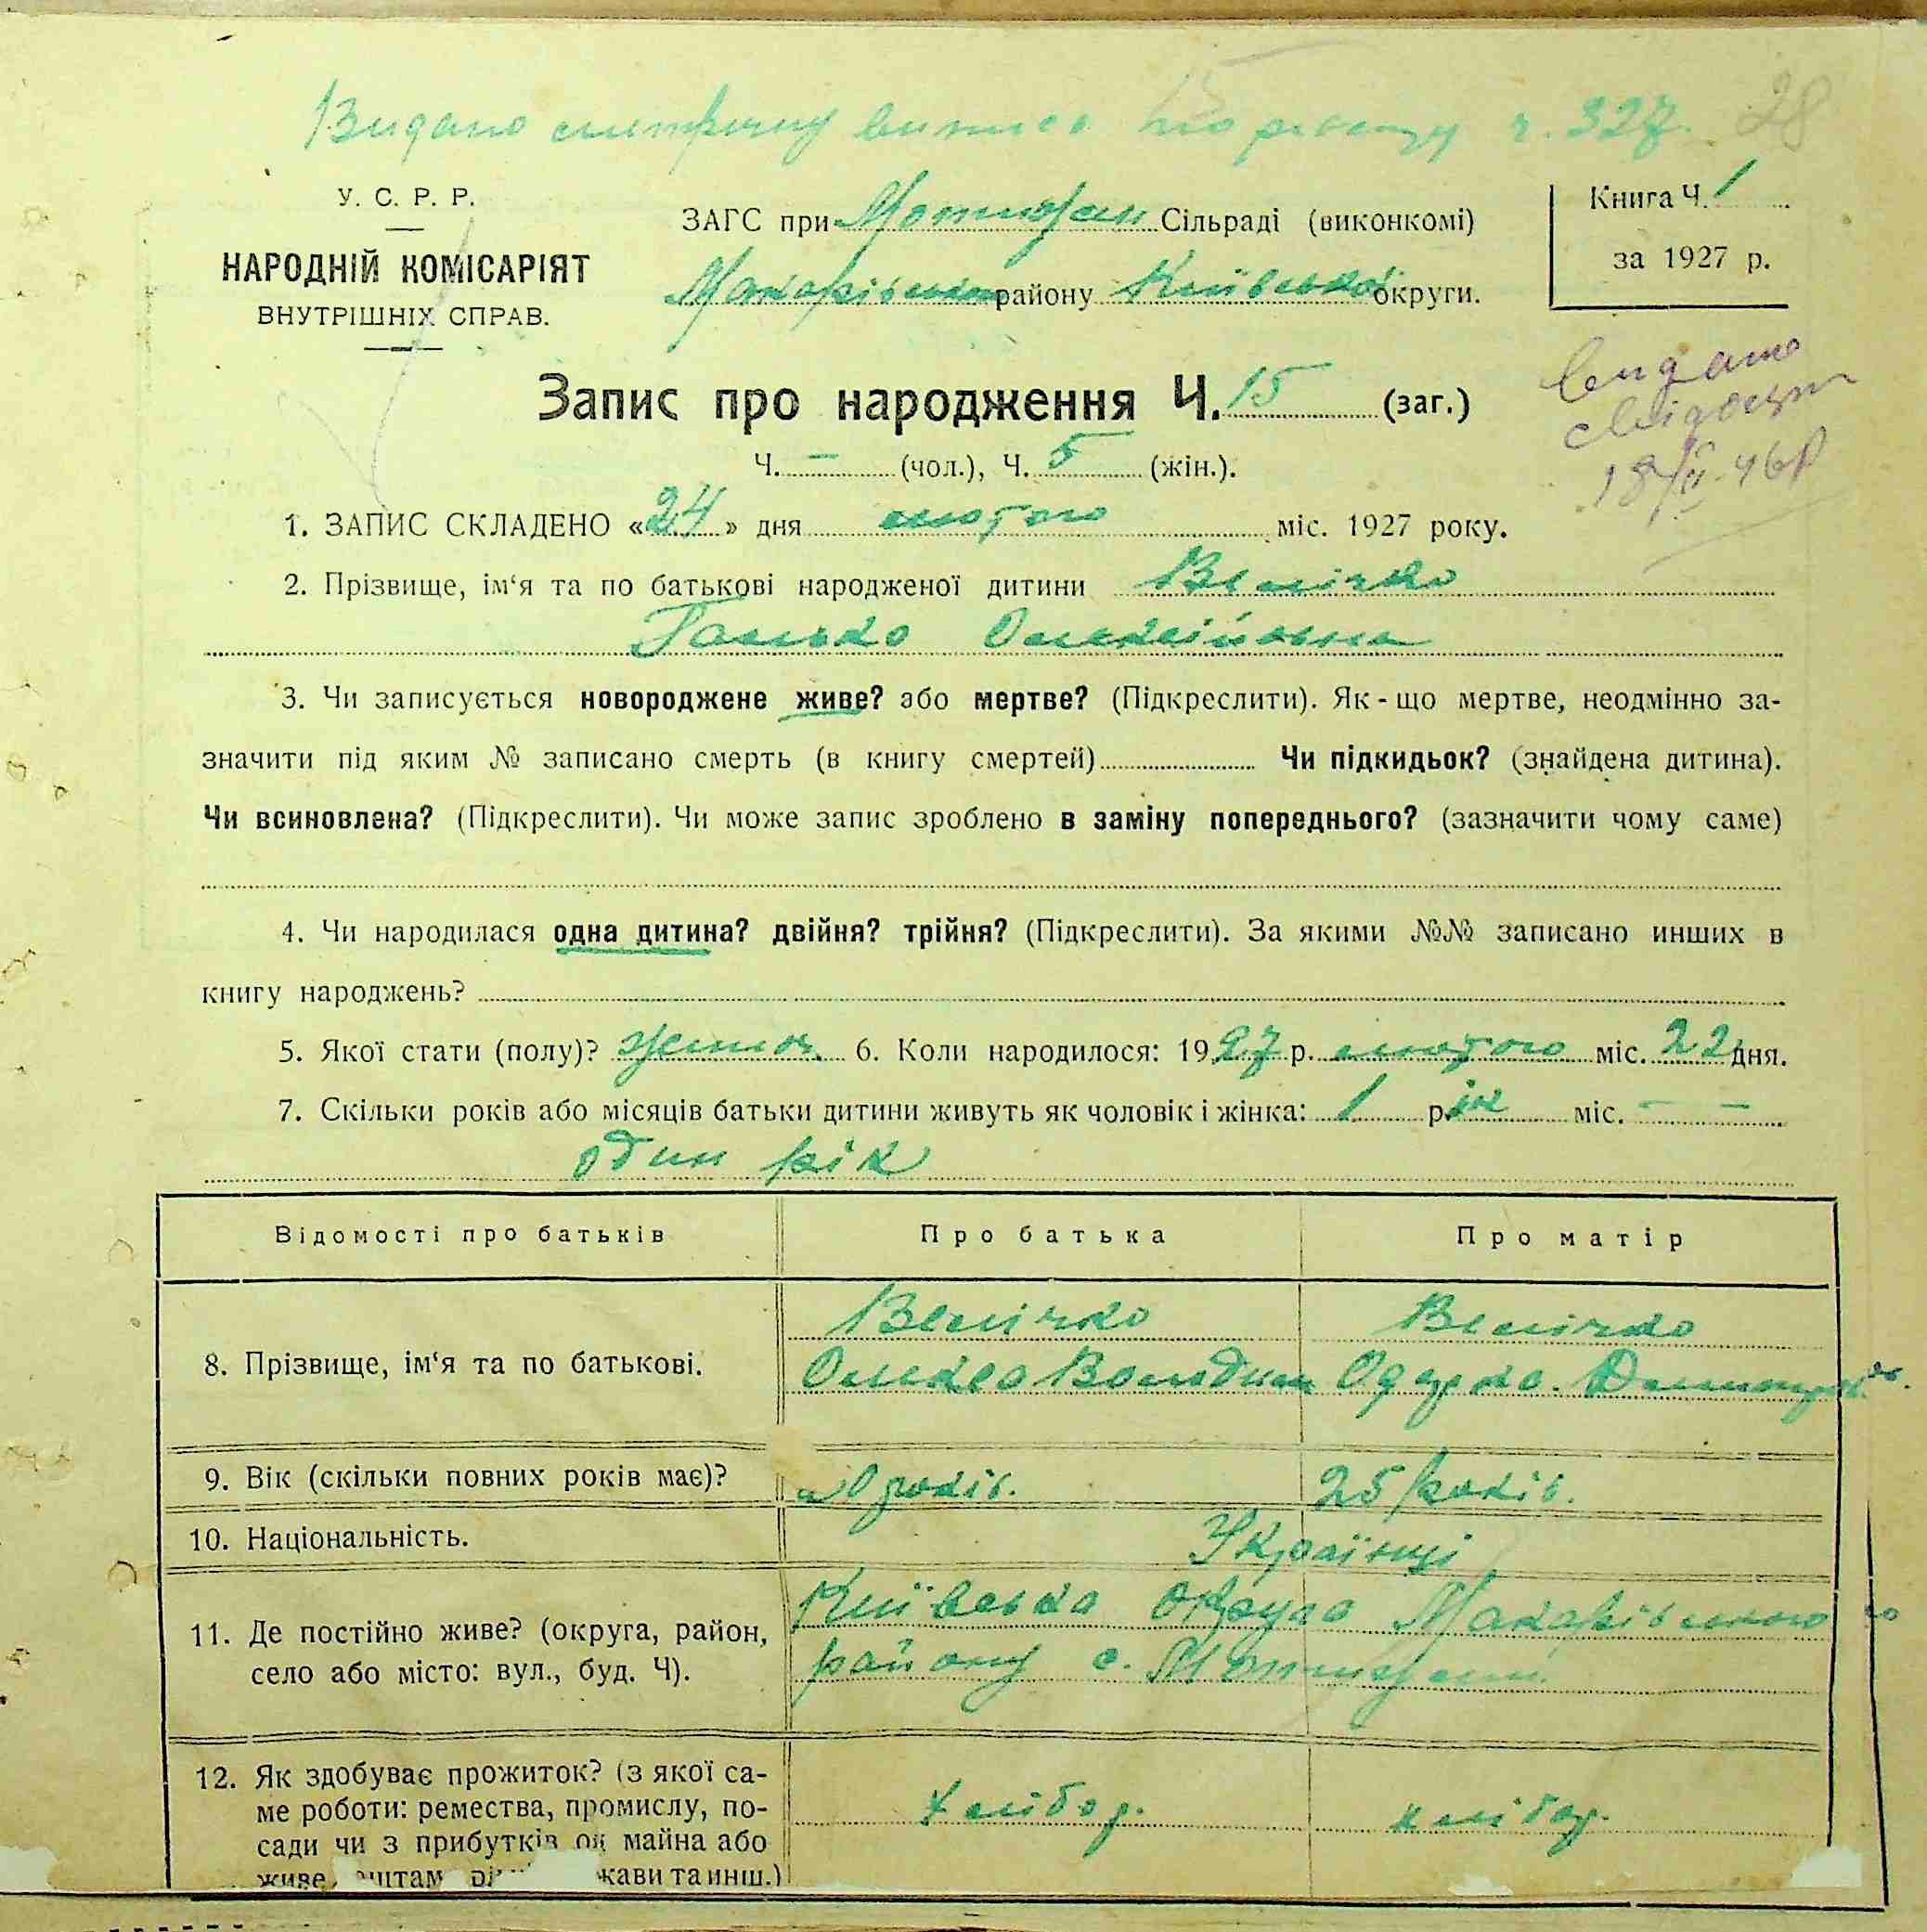 Видано метричну випись по реєстру ч. 327. 28
У. С. Р. Р.
НАРОДНІЙ КОМІСАРІЯТ
ВНУТРІШНІХ СПРАВ.
ЗАГС при Мотижен Сільраді (виконкомі)
Макарівського району Київської округи.
Книга Ч. 1
за 1927 р.
видано
свідоцт
18/II-46р
Запис про народження Ч. 15 (заг.)
Ч. — (чол.), Ч. 5 (жін.).
1. ЗАПИС СКЛАДЕНО «24» дня лютого міс. 1927 року.
2. Прізвище, ім‘я та по батькові народженої дитини Велічко
Галька Олексіївна
3. Чи записується новороджене живе? або мертве? (Підкреслити). Як - що мертве, неодмінно за-
значити під яким № записано смерть (в книгу смертей) Чи підкидьок? (знайдена дитина).
Чи всиновлена? (Підкреслити). Чи може запис зроблено в заміну попереднього? (зазначити чому саме)
4. Чи народилася одна дитина? двійня? трійня? (Підкреслити). За якими №№ записано инших в
книгу народжень?
5. Якої стати (полу)? жіноч. 6. Коли народилося: 1927 р. лютого міс. 22 дня.
7. Скільки років або місяців батьки дитини живуть як чоловік і жінка: 1 рік міс. — —
один рік
Відомості про батьків Про батька Про матір
8. Прізвище, ім‘я та по батькові.
Велічко Велічко
Олекса Володим Одарка
9. Вік (скільки повних років має)? 20 років. 25 років.
10. Національність. Українці
11. Де постійно живе? (округа, район,
село або місто: вул., буд. Ч).
Київська округа Макарівського
району с. Мотижені
12. Як здобуває прожиток? (з якої са-
ме роботи: ремества, промислу, по-
сади чи з прибутків од майна або
живе кави та инш.)
хлібор. хлібор.